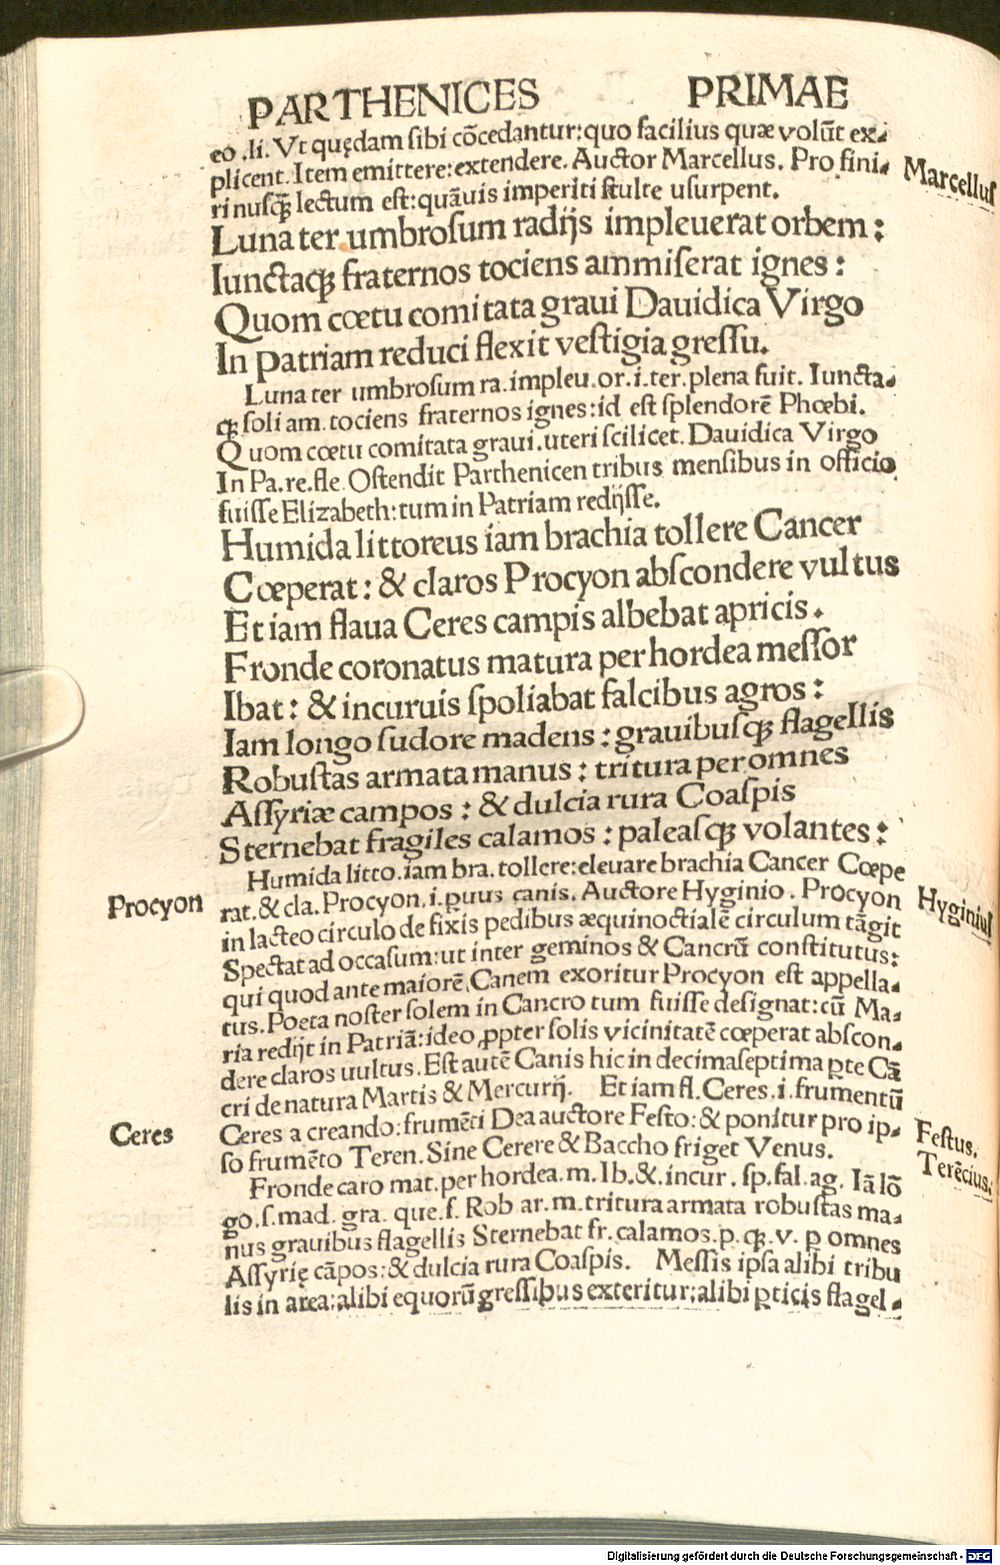 PARTHENICES PRIMAE
eo .li. Vt quędam sibi cõcedantur:quo facilius quæ volũt ex-
plicent. Item emittere:extendere. Auctor Marcellus. Pro fini-
Marcellus
ri nusq̃ lectum est:quãuis imperiti stulte usurpent.
Luna ter umbrosum radijs impleuerat orbem:
Iunctaqꝫ fraternos tociens ammiserat ignes:
Quom cœtu comitata graui Dauidica Virgo
In patriam reduci flexit vestigia gressu.
Luna ter umbrosum ra.impleu.or.i.ter.plena fuit. Iuncta-
qꝫ soli am.tociens fraternos ignes:id est splendorẽ Phœbi.
Quom cœtu comitata graui.uteri scilicet. Dauidica Virgo
In Pa.re.fle. Ostendit Parthenicen tribus mensibus in officio
fuisse Elizabeth:tum in Patriam redijsse.
Humida littoreus iam brachia tollere Cancer
Cœperat: & claros Procyon abscondere vultus
Et iam flaua Ceres campis albebat apricis.
Fronde coronatus matura per hordea messor
Ibat: & incuruis spoliabat falcibus agros:
Iam longo sudore madens: grauibusqꝫ flagellis
Robustas armata manus: tritura per omnes
Assyriæ campos: & dulcia rura Coaspis
Sternebat fragiles calamos: paleasqꝫ volantes:
Humida litto.iam bra.tollere:eleuare brachia Cancer Cœpe
Procyon
rat.& cla.Procyon.i.puus canis. Auctore Hyginio. Procyon
Hyginius
in lacteo circulo de fixis pedibus æquinoctialẽ circulum tãgit
Spectat ad occasum:ut inter geminos & Cancrũ constitutus:
qui quod ante maiorẽ Canem exoritur Procyon est appella-
tus.Poeta noster solem in Cancro tum fuisse designat:cũ Ma-
ria redijt in Patriã:ideo ꝓpter solis vicinitatẽ cœperat abscon-
dere claros uultus.Est autẽ Canis hic in decimaseptima ꝑte Cã
cri de natura Martis & Mercurij. Et iam fl.Ceres.i.frumentũ
Ceres
Ceres a creando:frumẽti Dea auctore Festo:& ponitur pro ip-
Festus.
so frumẽto Teren.Sine Cerere & Baccho friget Venus.
Terẽcius.
Fronde caro mat.per hordea.m.Ib.&.incur.sp.fal.ag. Iã lõ
go.s.mad. gra. que.f. Rob ar.m.tritura armata robustas ma-
nus grauibus flagellis Sternebat fr.calamos.p.qꝫ.v. ꝑ omnes
Assyrię cãpos:& dulcia rura Coaspis. Messis ipsa alibi tribu
lis in area:alibi equorũ gressibus exteritur:alibi ꝑticis flagel-
Digitalisierung gefördert durch die Deutsche Forschungsgemeinschaft - DFG